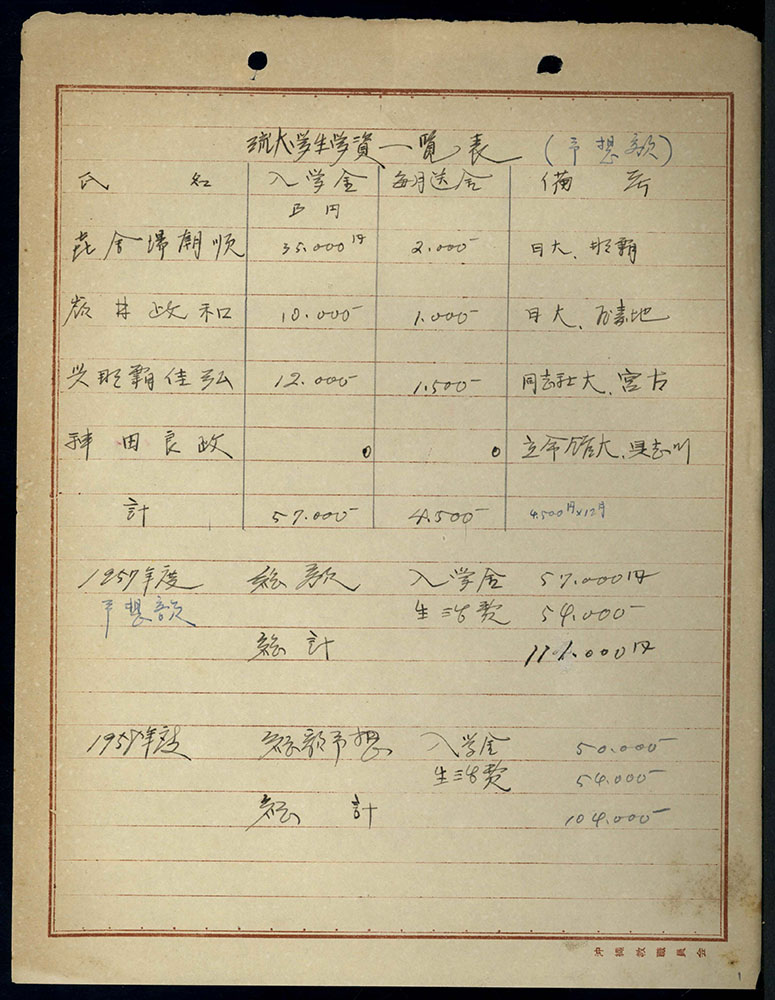 琉大学生学資一覧表 (予想額)
氏 名 入学金 毎月送金 備 考
B円
喜舎場朝順 35.000円 2.000- 日大、那覇
嶺井政和 10.000- 1.000- 日大、
与那覇佳弘 12.000- 1.500- 同志社大、宮古
神田良政 0 0 立命館大、具志川
計 57.000- 4.500- 4.500円×12月
1957年度 総額 入学金 57.000円
予想額 生活費 54.000-
総計 111.000円
1957年度 総額予想 入学金 50.000-
生活費 54.000-
総 計 104.000-
沖縄教職員会
1